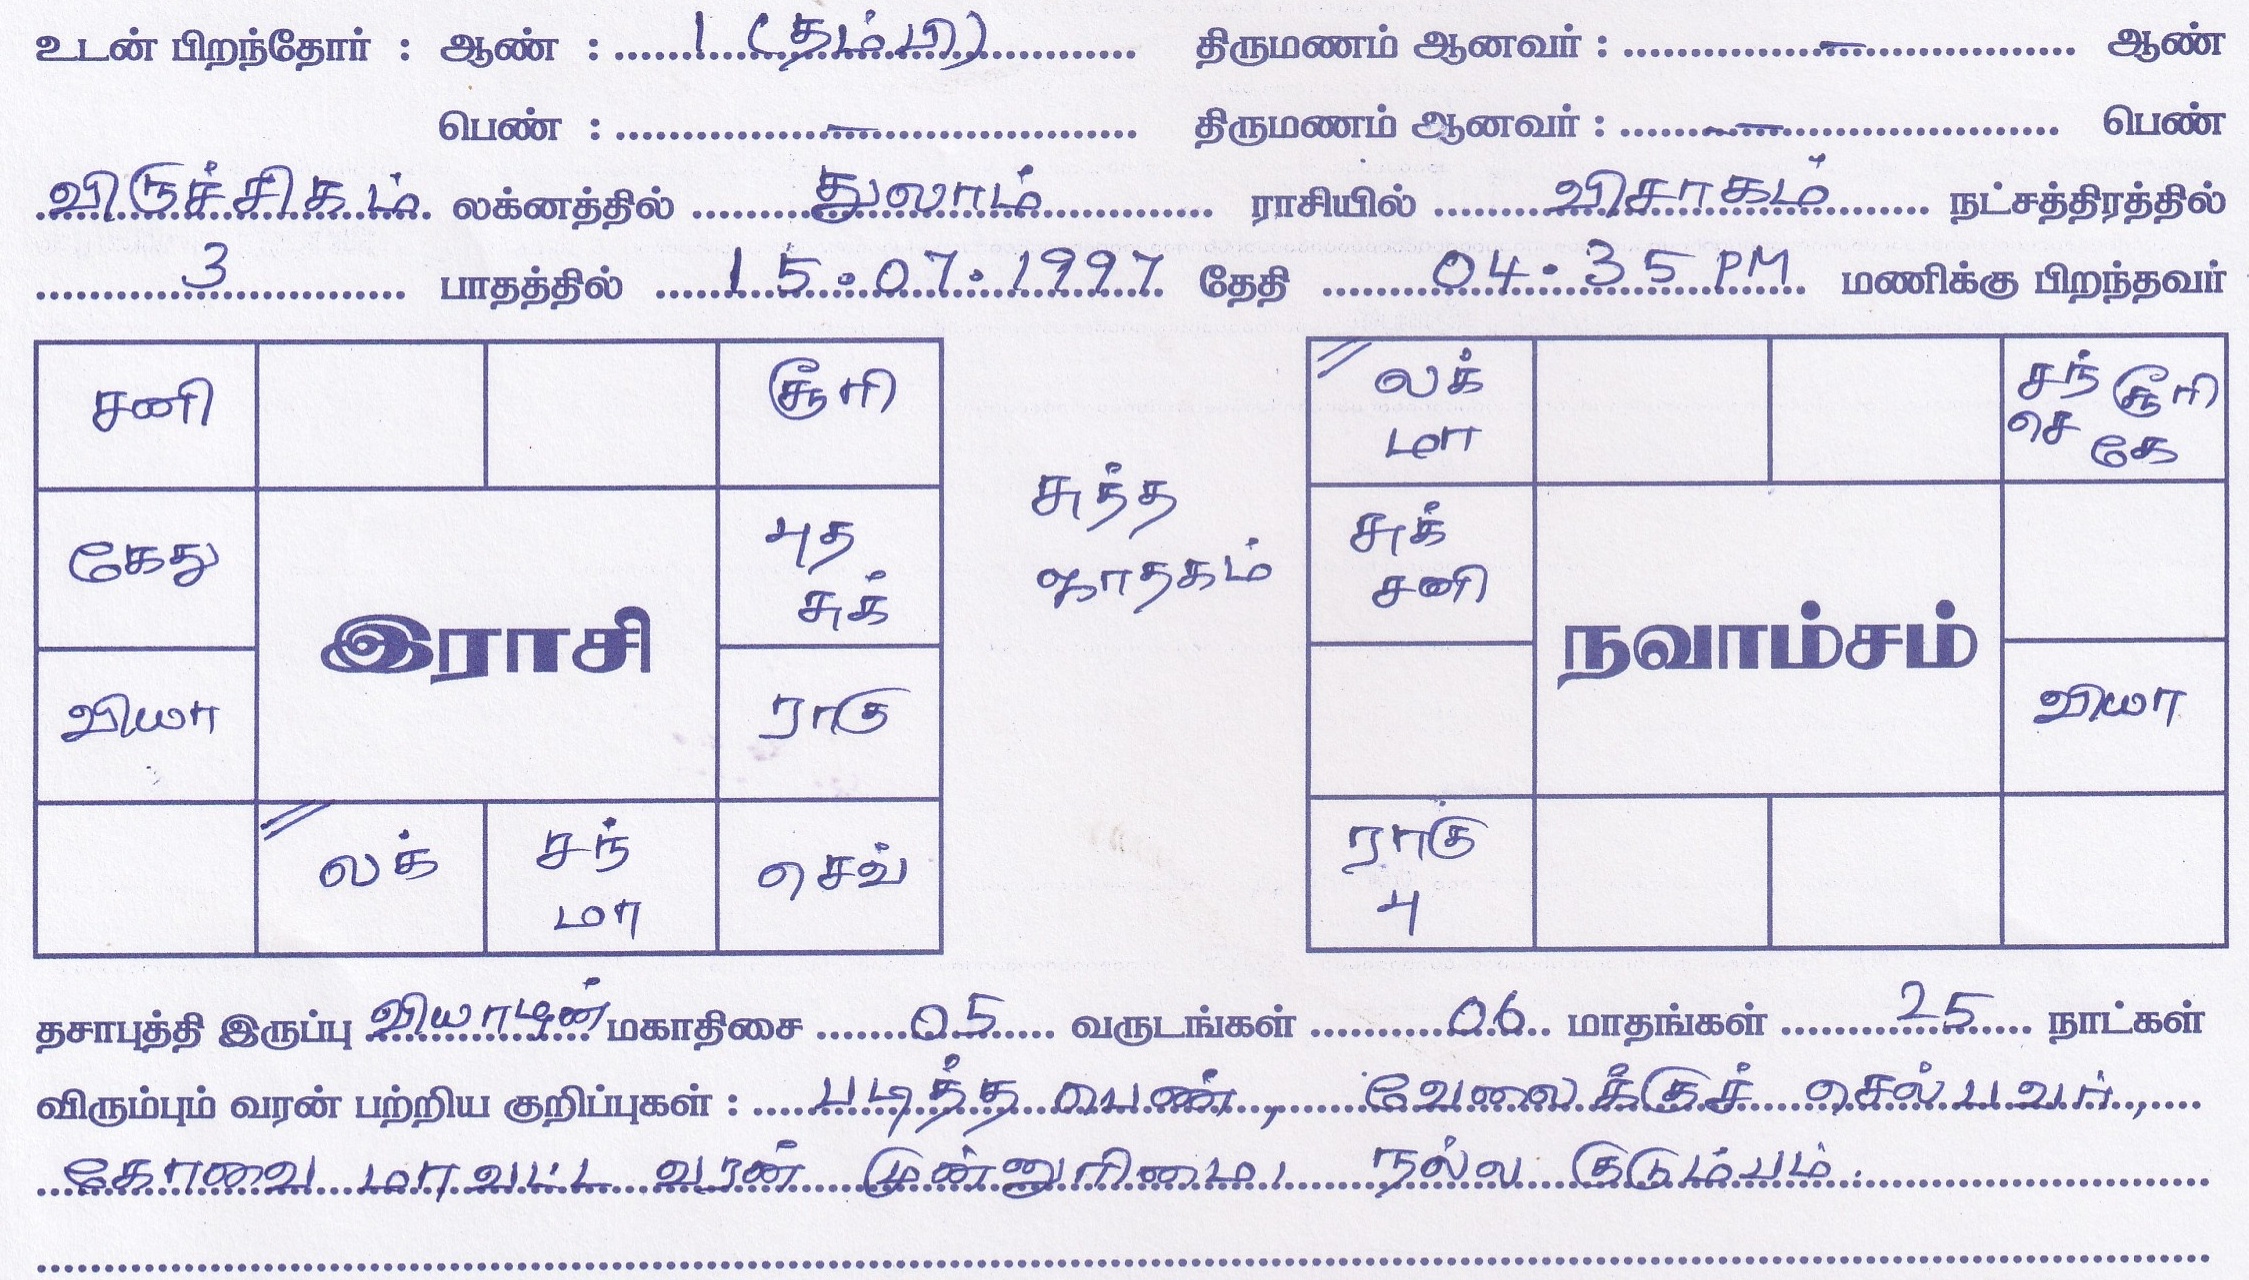 உடன் பிறந்தோர் : ஆண் : 1 (தம்பி) திருமணம் ஆனவர் : – ஆண்
பெண் : – திருமணம் ஆனவர் : – பெண்
விருச்சிகம் லக்னத்தில் துலாம் ராசியில் விசாகம் நட்சத்திரத்தில்
3 பாதத்தில் 15.07.1997 தேதி 04.35 PM மணிக்கு பிறந்தவர்
சனி சூரி
கேது புத சுக்
வியா ராகு
லக் சந் மா செவ்
இராசி
சுத்த
ஜாதகம்
லக் மா சந் சூரி செ கே
சுக் சனி
வியா
ராகு பு
நவாம்சம்
தசாபுத்தி இருப்பு வியாழன் மகாதிசை 05 வருடங்கள் 06 மாதங்கள் 25 நாட்கள்
விரும்பும் வரன் பற்றிய குறிப்புகள் : படித்த பெண், வேலைக்குச் செல்பவர்,
கோவை மாவட்ட வரன் முன்னுரிமை, நல்ல குடும்பம்.